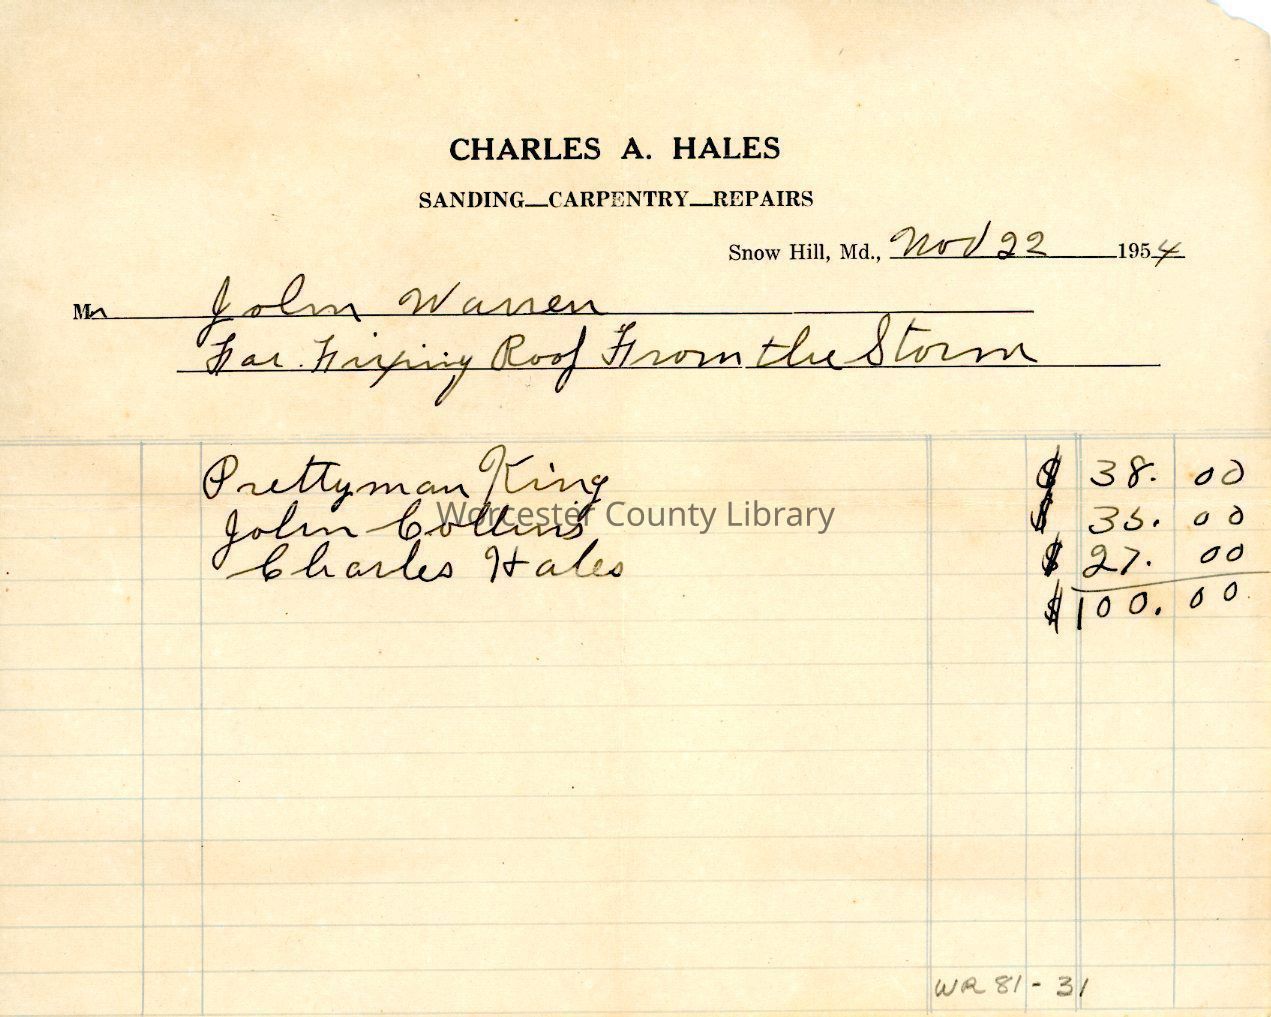 CHARLES A. HALES
SANDING—CARPENTRY—REPAIRS
Snow Hill, Md., Nov 22 1954
Mr John Warren
For. Fixping Roof From the Storm
Prettyman King $ 38. 00
John Collins $ 35. 00
Worcester County Library
Charles Hales $ 27. 00
$100.00
WR 81-31